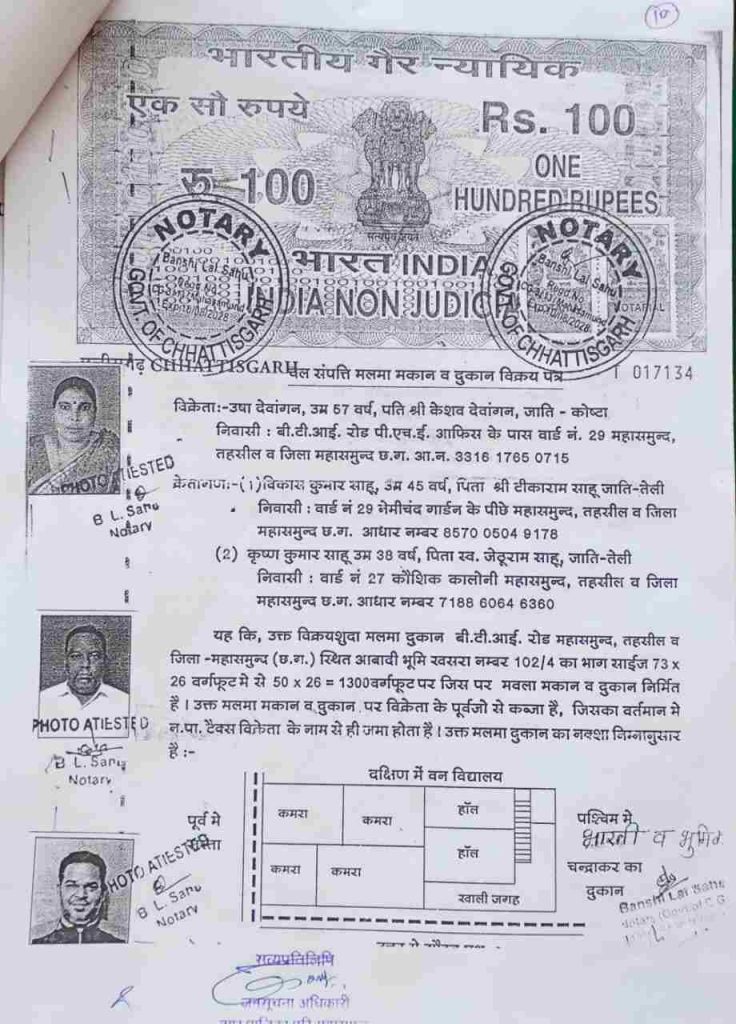 10
भारतीय गैर न्यायिक
एक सौ रुपये
Rs. 100
रू 100
ONE
HUNDRED RUPEES
सत्यमेव जयते
भारत INDIA
INDIA NON JUDICIAL
NOTARY
Banshi Lal Sahu
GOVT. OF CHHATTISGARH
NOTARY
Banshi Lal Sahu
GOVT. OF CHHATTISGARH
NOTARIAL
छत्तीसगढ़ CHHATTISGARH
संपत्ति मलमा मकान व दुकान विक्रय पत्र
017134
विक्रेताः-उषा देवांगन, उम्र 57 वर्ष, पति श्री केशव देवांगन, जाति - कोष्टा
निवासी : बी.टी.आई. रोड पी.एच.ई. आफिस के पास वार्ड नं. 29 महासमुन्द,
तहसील व जिला महासमुन्द छ.ग. आ.न. 3316 1765 0715
PHOTO ATIESTED
B L. Sahu
Notary
क्रेतागणः-(1)विकास कुमार साहू, उम्र 45 वर्ष, पिता श्री टीकाराम साहू जाति-तेली
निवासी : वार्ड नं 29 नेमीचंद गार्डन के पीछे महासमुन्द, तहसील व जिला
महासमुन्द छ.ग. आधार नम्बर 8570 0504 9178
(2) कृष्ण कुमार साहू उम्र 38 वर्ष, पिता स्व. जेठूराम साहू, जाति-तेली
निवासी : वार्ड नं 27 कौशिक कालोनी महासमुन्द, तहसील व जिला
महासमुन्द छ.ग. आधार नम्बर 7188 6064 6360
यह कि, उक्त विक्रयशुदा मलमा दुकान बी.टी.आई. रोड महासमुन्द, तहसील व
जिला -महासमुन्द (छ.ग.) स्थित आबादी भूमि खसरा नम्बर 102/4 का भाग साईज 73 x
26 वर्गफूट मे से 50 x 26 = 1300वर्गफूट पर जिस पर मवला मकान व दुकान निर्मित
है । उक्त मलमा मकान व दुकान पर विक्रेता के पूर्वजो से कब्जा है, जिसका वर्तमान मे
न.पा. टैक्स विक्रेता के नाम से ही जमा होता है । उक्त मलमा दुकान का नक्शा निम्नानुसार
है :-
PHOTO ATIESTED
B L. Sahu
Notary
दक्षिण में वन विद्यालय
पूर्व मे
कमरा
कमरा
हॉल
हॉल
कमरा
कमरा
खाली जगह
पश्चिम मे
भारती व भूमि
चन्द्राकर का
दुकान
PHOTO ATIESTED
B L. Sahu
Notary
Banshi Lal Sahu
सत्यप्रतिलिपि
जनसूचना अधिकारी